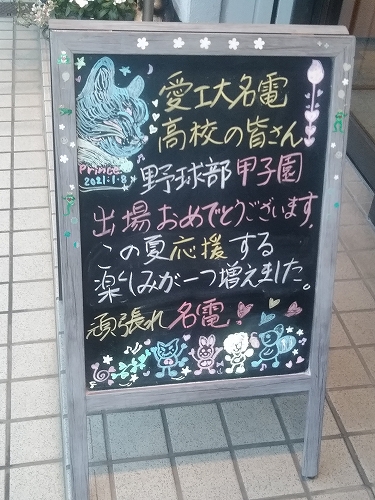 愛工大名電
高校の皆さん
Prince
2021.1.8
野球部甲子園
出場おめでとうございます。
この夏応援する
楽しみが一つ増えました。
頑張れ名電